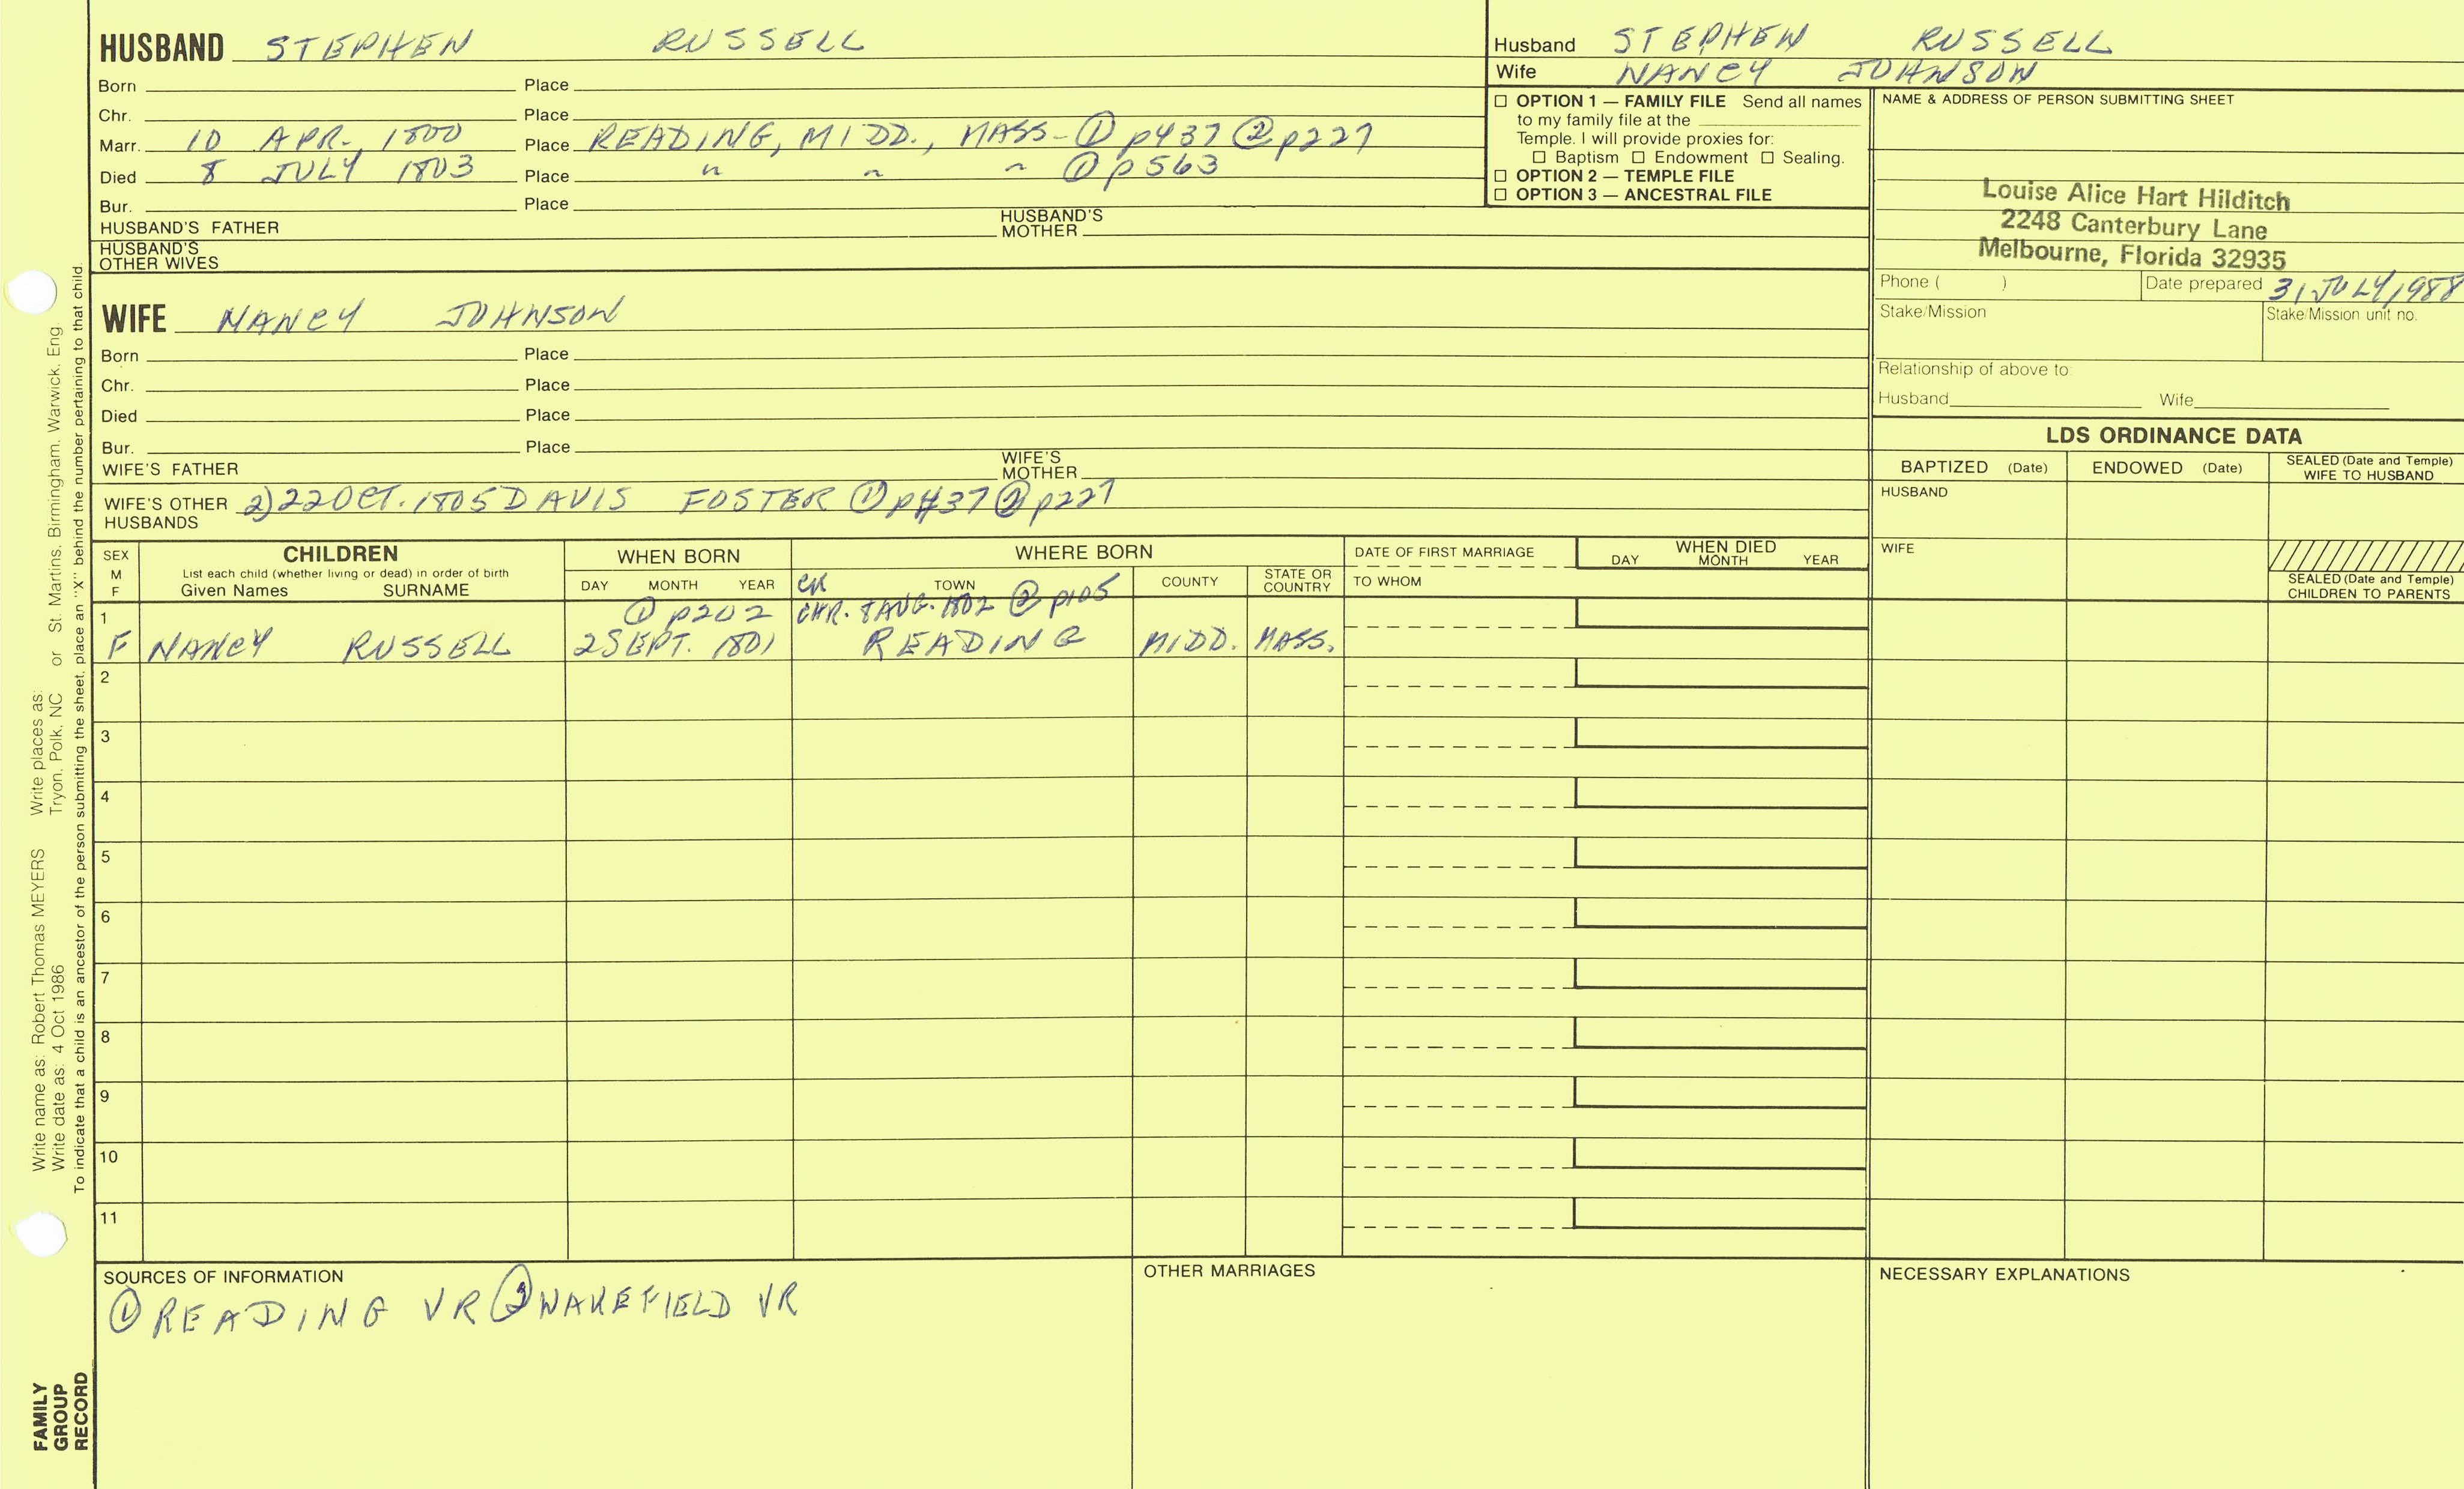 HUSBAND STEPHEN RUSSELL
Born Place
Chr. Place
Marr. 10 APR. 1800 Place READING, MIDD., MASS-① p437 ② p227
Died 8 JULY 1803 Place " " " ① p563
Bur. Place
HUSBAND'S FATHER HUSBAND'S MOTHER
HUSBAND'S OTHER WIVES
Husband STEPHEN RUSSELL
Wife NANCY JOHNSON
☐ OPTION 1 — FAMILY FILE Send all names
to my family file at the
Temple. I will provide proxies for:
☐ Baptism ☐ Endowment ☐ Sealing.
☐ OPTION 2 — TEMPLE FILE
☐ OPTION 3 — ANCESTRAL FILE
NAME & ADDRESS OF PERSON SUBMITTING SHEET
Louise Alice Hart Hilditch
2248 Canterbury Lane
Melbourne, Florida 32935
Phone ( ) Date prepared 31 JULY 1988
Stake/Mission Stake/Mission unit no.
Relationship of above to
Husband Wife
WIFE NANCY JOHNSON
Born Place
Chr. Place
Died Place
Bur. Place
WIFE'S FATHER WIFE'S MOTHER
WIFE'S OTHER HUSBANDS 2) 22 OCT. 1805 DAVIS FOSTER ① p437 ② p227
LDS ORDINANCE DATA
BAPTIZED (Date) ENDOWED (Date) SEALED (Date and Temple) WIFE TO HUSBAND
HUSBAND
WIFE
SEALED (Date and Temple) CHILDREN TO PARENTS
SEX M F
CHILDREN
List each child (whether living or dead) in order of birth
Given Names SURNAME
WHEN BORN
DAY MONTH YEAR
WHERE BORN
TOWN COUNTY STATE OR COUNTRY
DATE OF FIRST MARRIAGE
TO WHOM
WHEN DIED
DAY MONTH YEAR
1 ① p202 CHR. 8 AUG. 1802 ② p105
F NANCY RUSSELL 2 SEPT. 1801 READING MIDD. MASS.
2
3
4
5
6
7
8
9
10
11
SOURCES OF INFORMATION
① READING VR ② WAKEFIELD VR
OTHER MARRIAGES
NECESSARY EXPLANATIONS
Write name as: Robert Thomas MEYERS Write places as:
Write date as: 4 Oct 1986 Tryon, Polk, NC or St. Martins, Birmingham, Warwick, Eng.
To indicate that a child is an ancestor of the person submitting the sheet, place an "X" behind the number pertaining to that child.
FAMILY
GROUP
RECORD